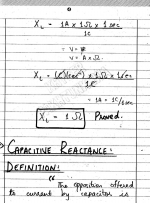 X_L = 1A × 1Ω × 1 sec
1C
∴ V =
V = A × Ω
X_L = × 1Ω × 1 sec
1C
∴ 1A = 1C/1sec
X_L = 1 Ω Proved.
CAPACITIVE REACTANCE:
DEFINITION:
" The opposition offered
to current by capacitor is